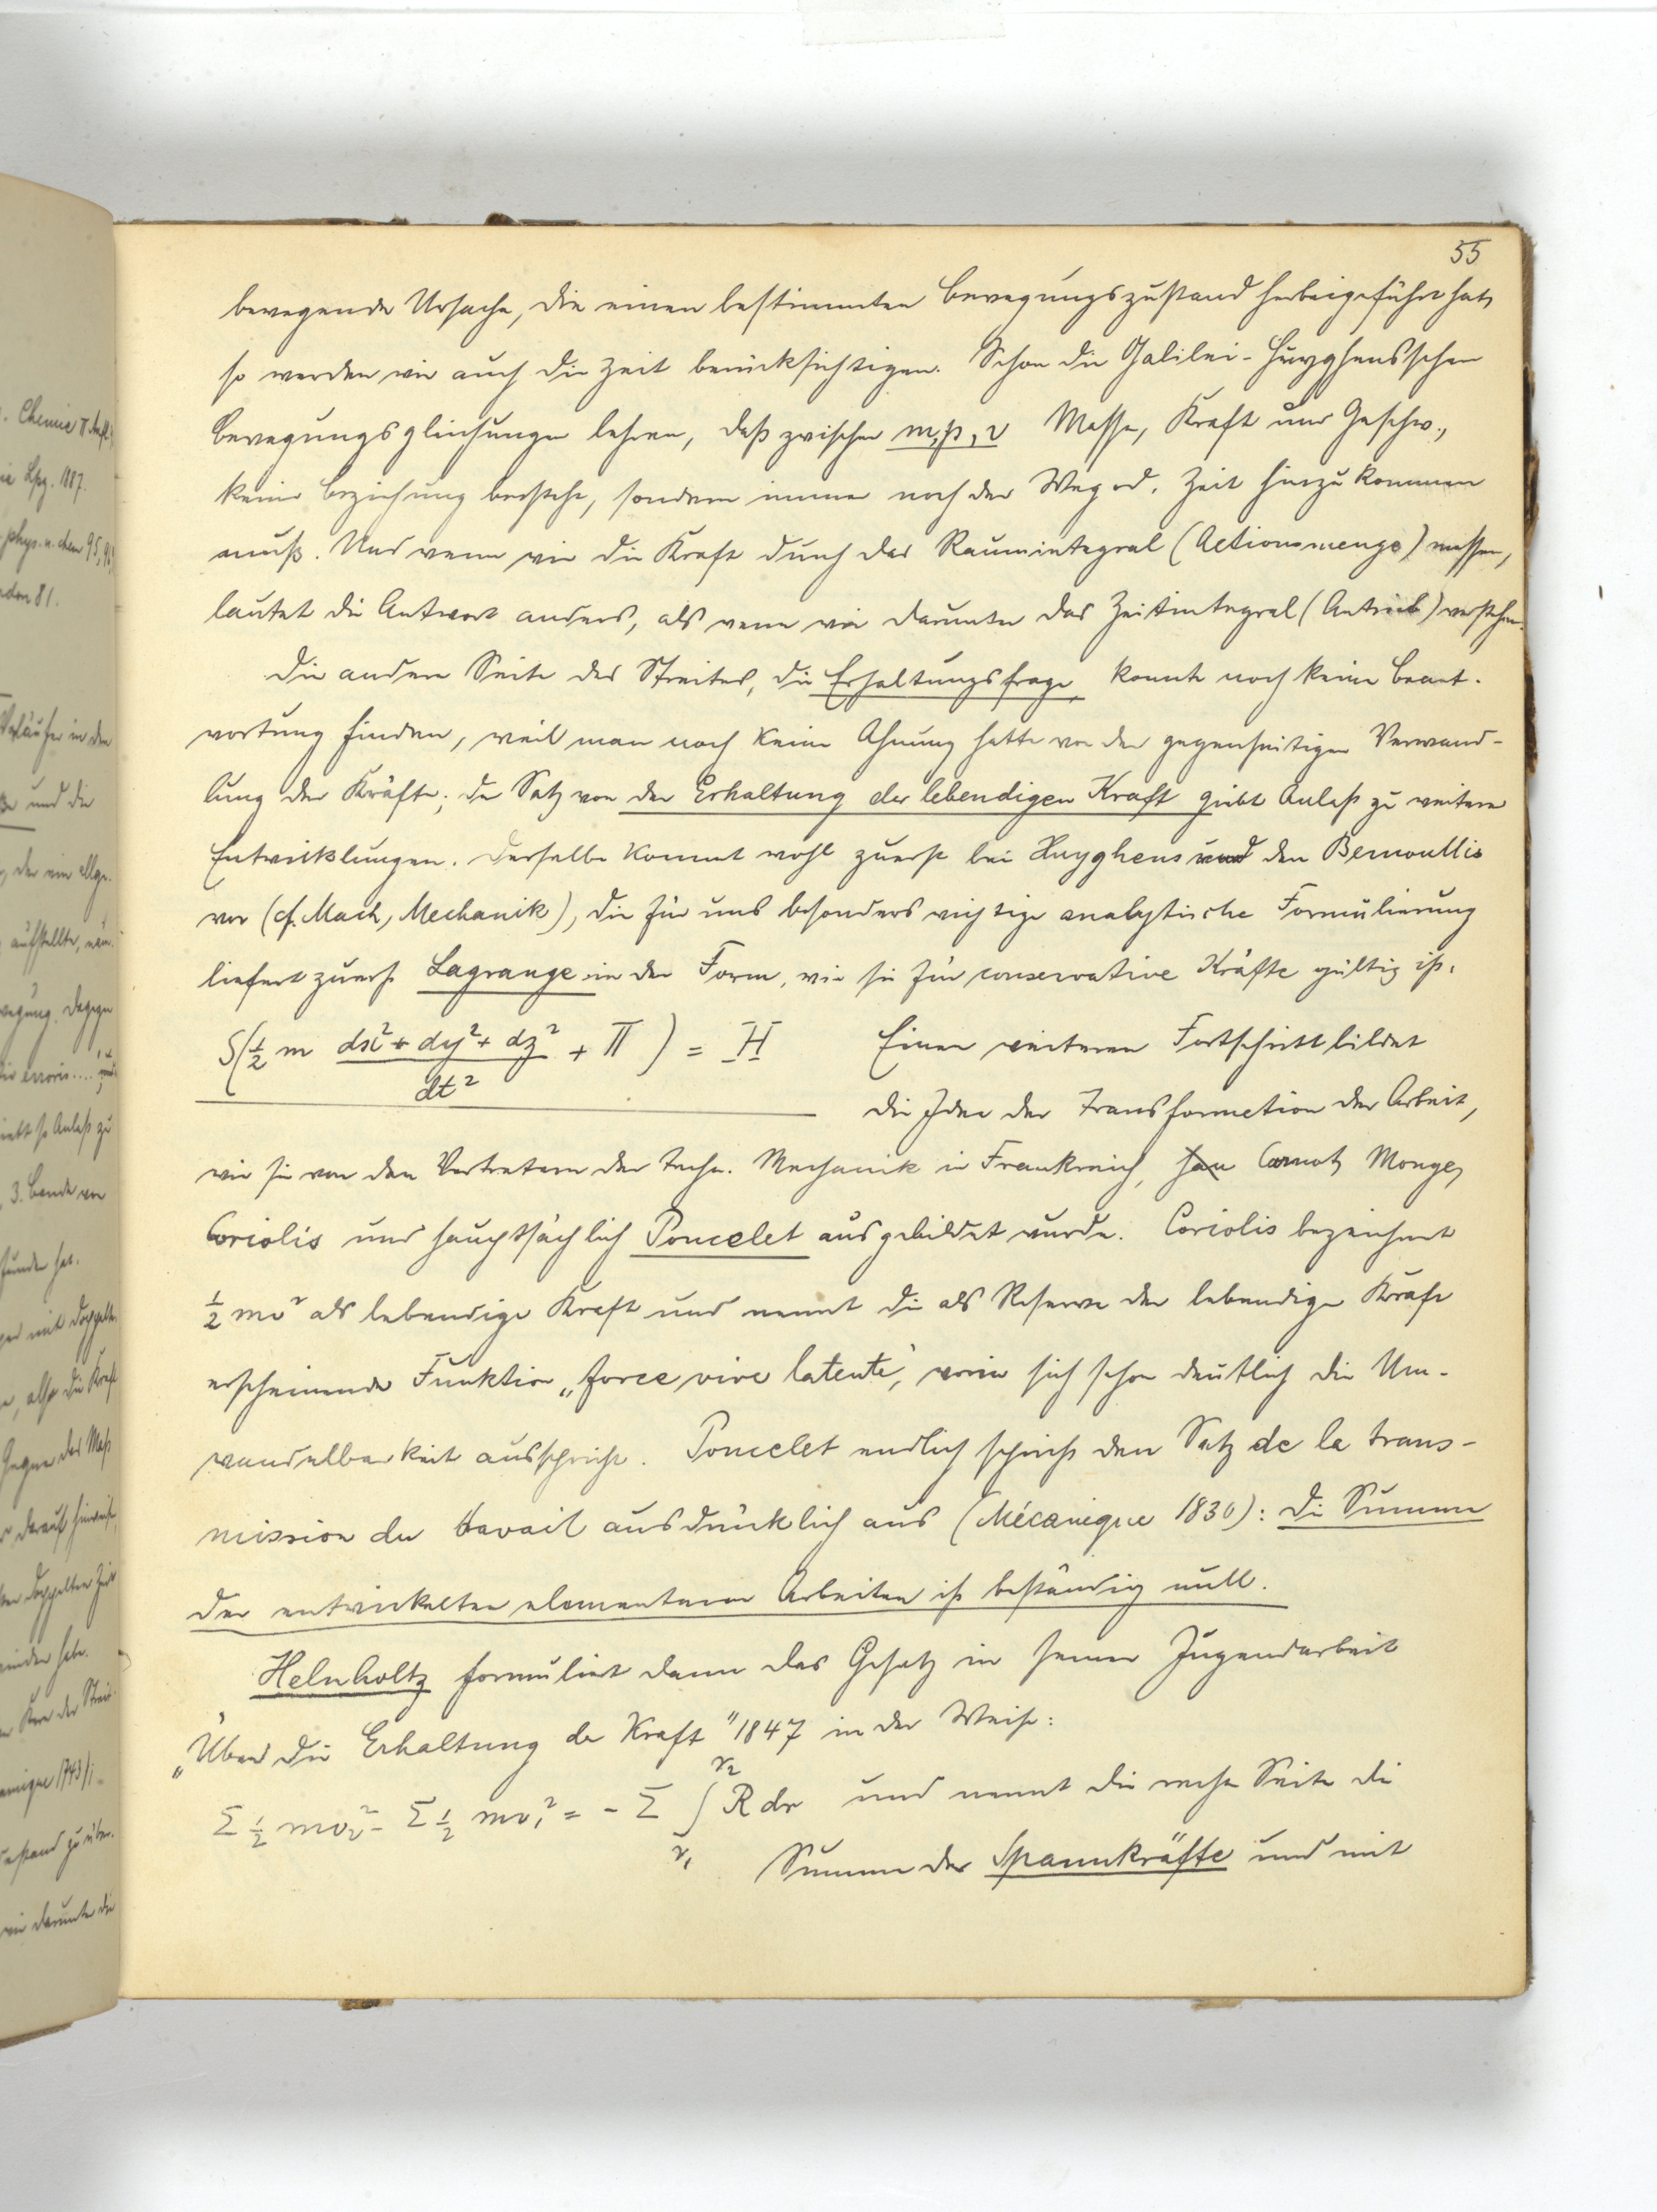 55
bewegende Ursache, die einen bestimmten Bewegungszustand herbeigeführt hat,
so werden wir auch die Zeit berücksichtigen. Schon die Galilei-Huyghensschen
Bewegungsgleichungen lehren, daß zwischen m, p, v Masse, Kraft und Geschw.,
keine Beziehung bestehe, sondern immer noch der Weg od. Zeit hinzukommen
muß. Und wenn wir die Kraft durch das Raumintegral (Actionsmenge) messen,
lautet die Antwort anders, als wenn wir darunter das Zeitintegral (Antrieb) verstehen.
Die andere Seite des Streites, die Erhaltungsfrage, konnte noch keine Beant-
wortung finden, weil man noch keine Ahnung hatte von der gegenseitigen Verwand-
lung der Kräfte; der Satz von der Erhaltung der lebendigen Kraft giebt Anlaß zu weitern
Entwicklungen. Derselbe kommt wohl zuerst bei Huyghens und den Bernoullis
vor (cf. Mach, Mechanik), die für uns besonders wichtige analytische Formulierung
liefert zuerst Lagrange in der Form, wie sie für conservative Kräfte gültig ist.
S(½ m (dx² + dy² + dz²)/dt² + Π) = H Einen weiteren Fortschritt bildet
die Idee der Transformation der Arbeit,
wie sie von den Vertretern der techn. Mechanik in Frankreich, Carnot, Monge,
Coriolis und hauptsächlich Poncelet ausgebildet wurde. Coriolis bezeichnet
½ mv² als lebendige Kraft und nennt die als Reserve der lebendigen Kraft
erscheinende Funktion „force vive latente", worin sich schon deutlich die Um-
wandelbarkeit ausspricht. Poncelet endlich spricht den Satz de la trans-
mission du travail ausdrücklich aus (Mécanique 1830): die Summe
der entwickelten elementaren Arbeiten ist beständig null.
Helmholtz formuliert dann das Gesetz in seiner Jugendarbeit
„Über die Erhaltung der Kraft" 1847 in der Weise:
Σ ½ mv₂² - Σ ½ mv₁² = - Σ ∫ R dr und nennt die rechte Seite die
r₂
r₁ Summe der Spannkräfte und mit